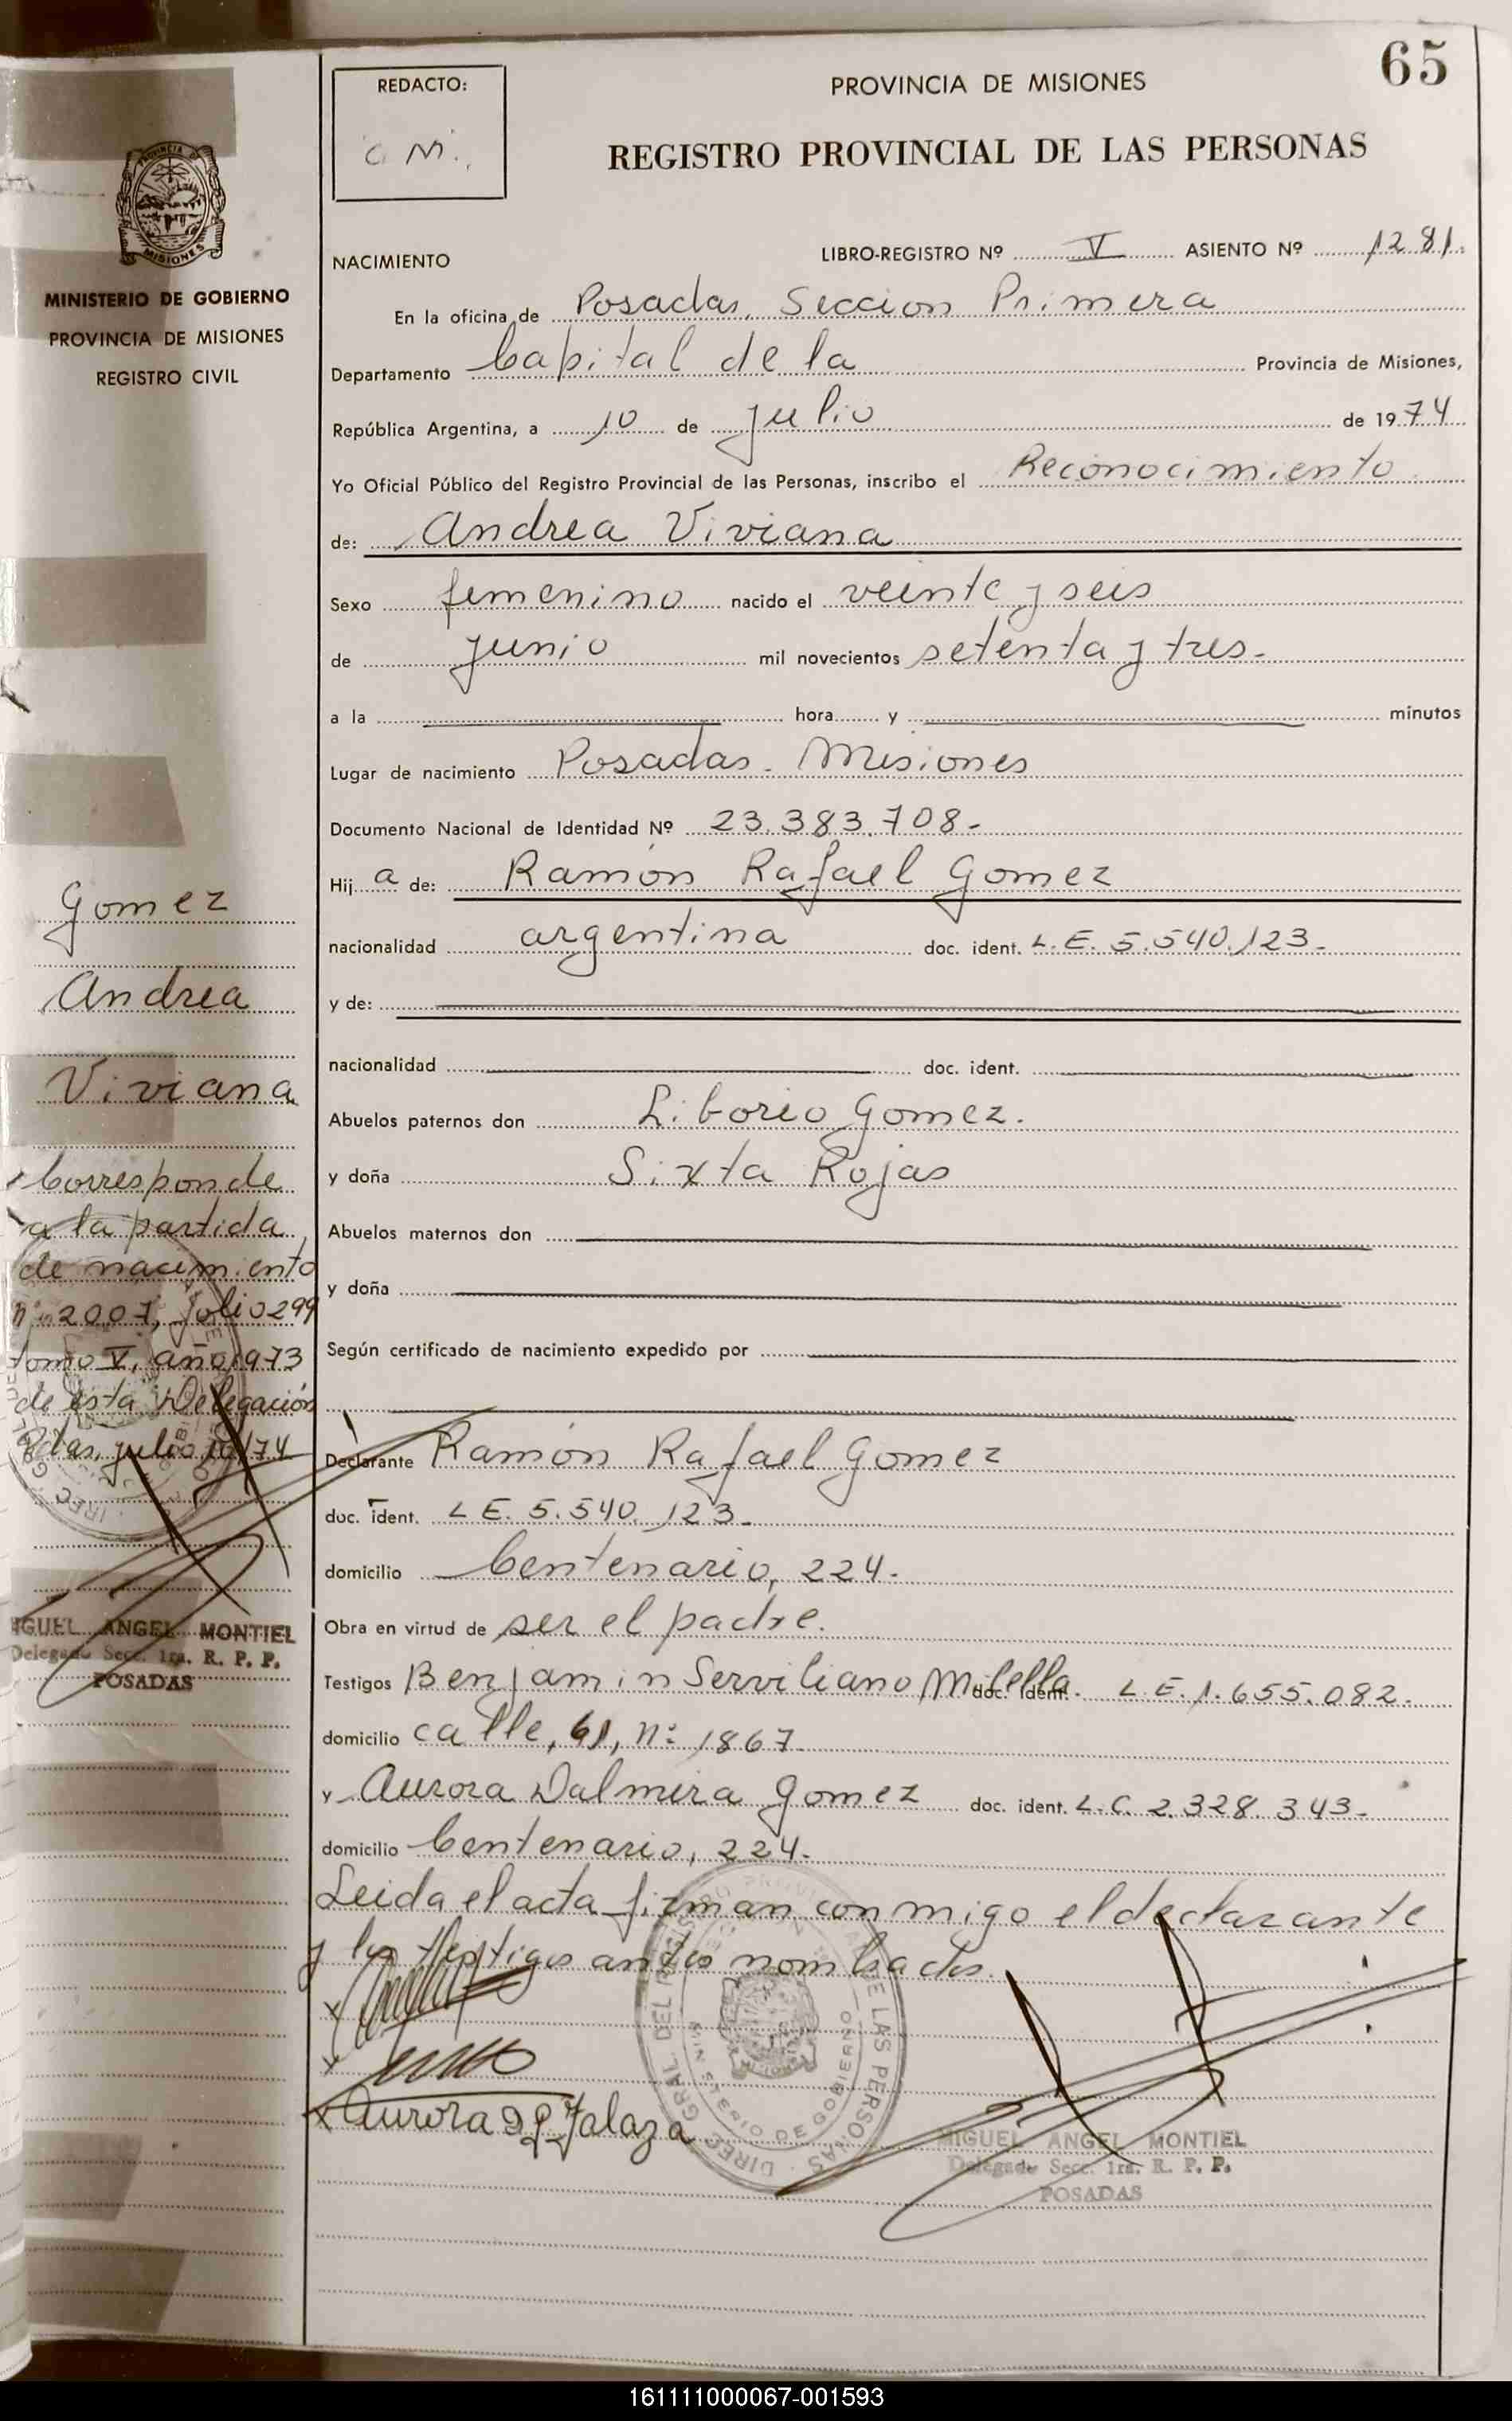 65
REDACTO:
O M.
PROVINCIA DE MISIONES
REGISTRO PROVINCIAL DE LAS PERSONAS
PROVINCIA D
MISIONES
MINISTERIO DE GOBIERNO
PROVINCIA DE MISIONES
REGISTRO CIVIL
NACIMIENTO
LIBRO-REGISTRO Nº V ASIENTO Nº 1281.
En la oficina de Posadas, Seccion Primera
Departamento Capital de la Provincia de Misiones,
República Argentina, a 10 de julio de 1974
Yo Oficial Público del Registro Provincial de las Personas, inscribo el Reconocimiento
de: Andrea Viviana
Sexo femenino nacido el veinte y seis
de junio mil novecientos setenta y tres.
a la hora y minutos
Lugar de nacimiento Posadas. Misiones
Documento Nacional de Identidad Nº 23.383.708-
Hij a de: Ramón Rafael Gomez
nacionalidad argentina doc. ident. L.E. 5.540.123-
y de:
nacionalidad doc. ident.
Abuelos paternos don Liborio Gomez.
y doña Sixta Rojas
Abuelos maternos don
y doña
Según certificado de nacimiento expedido por
Declarante Ramón Rafael Gomez
doc. ident. L E. 5.540.123-
domicilio Centenario, 224-
Obra en virtud de ser el padre.
Testigos Benjamin Serviliano doc. ident. L.E.1.655.082.
domicilio calle, 61, nº 1867
y Aurora Dalmira Gomez doc. ident. L.C. 2.328.343-
domicilio Centenario, 224-
Leida el acta firman conmigo el declarante
y los testigos antes nombrados.
Aurora
MIGUEL ANGEL MONTIEL
Delegado Secc. 1ra. R. P. P.
POSADAS
DIREC GRAL DEL REGISTRO PROVINCIAL DE LAS PERSONAS
MINISTERIO DE GOBIERNO
Gomez
Andrea
Viviana
Corresponde
a la partida
de nacimiento
nº 2007, folio 299
tomo V, año 1973
de esta Delegación
Pdas, julio 10/74
IGUEL ANGEL MONTIEL
Delegado Secc. 1ra. R. P. P.
POSADAS
161111000067-001593